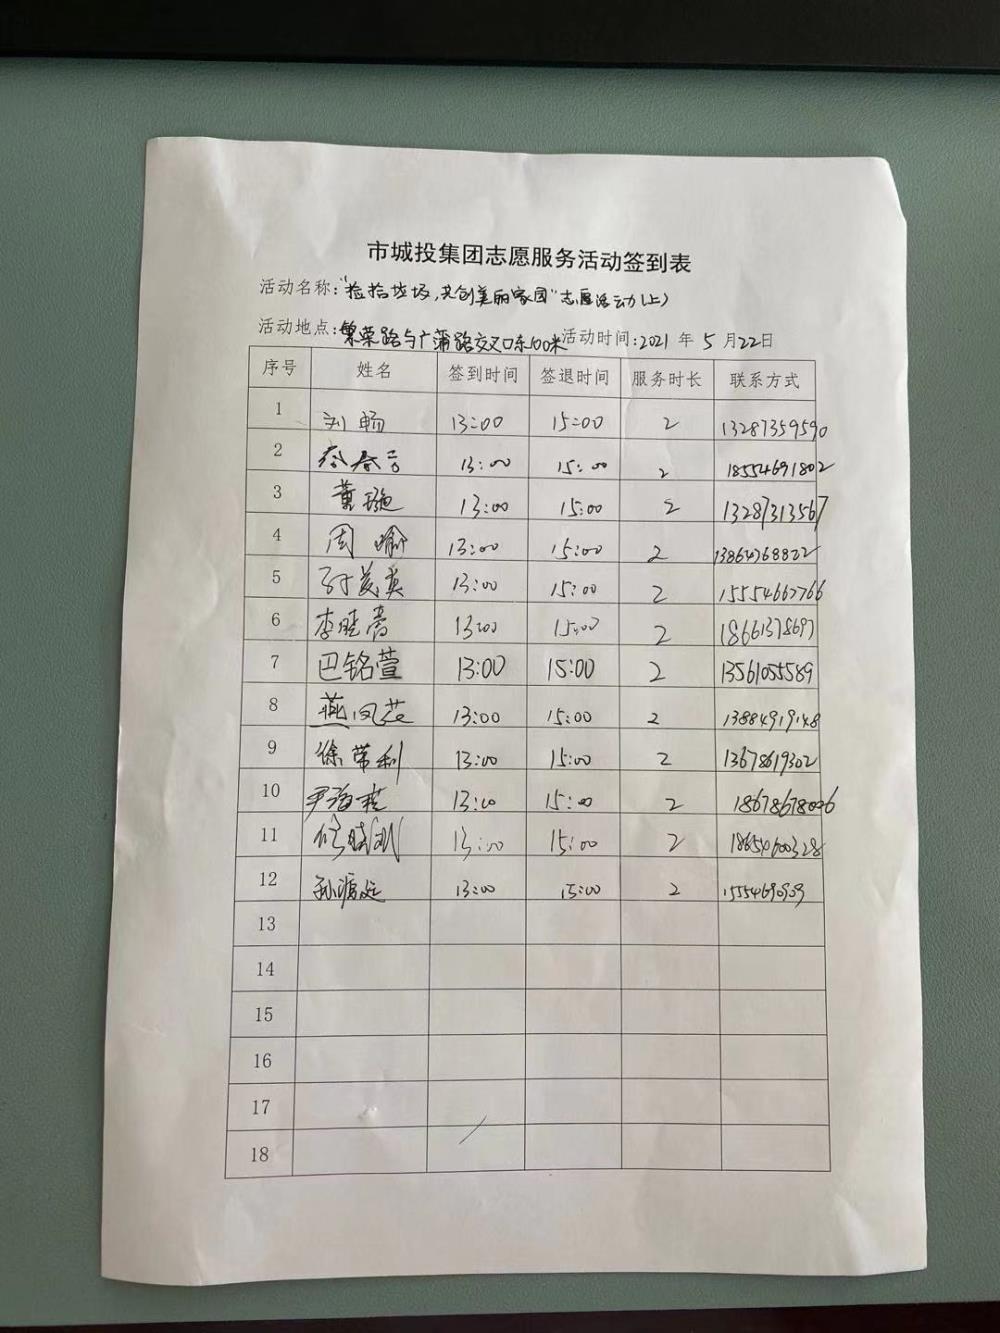 市城投集团志愿服务活动签到表
活动名称:"捡拾垃圾,共创美丽家园"志愿活动(上)
活动地点:繁荣路与广蒲路交叉口东100米 活动时间:2021 年 5 月22日
序号 姓名 签到时间 签退时间 服务时长 联系方式
1 刘畅 13:00 15:00 2 13287359590
2 13:00 15:00 2 18554691802
3 董璇 13:00 15:00 2 13287313567
4 周瑜 13:00 15:00 2 13864768822
5 孙美英 13:00 15:00 2 15554667766
6 李晓蕾 13:00 15:00 2 18661378697
7 巴铭萱 13:00 15:00 2 13561055589
8 燕凤芸 13:00 15:00 2 13884919148
9 徐荣利 13:00 15:00 2 13678619302
10 尹海 13:00 15:00 2 18678678006
11 13:00 15:00 2 18654600328
12 孙 13:00 15:00 2 15554690909
13
14
15
16
17
18